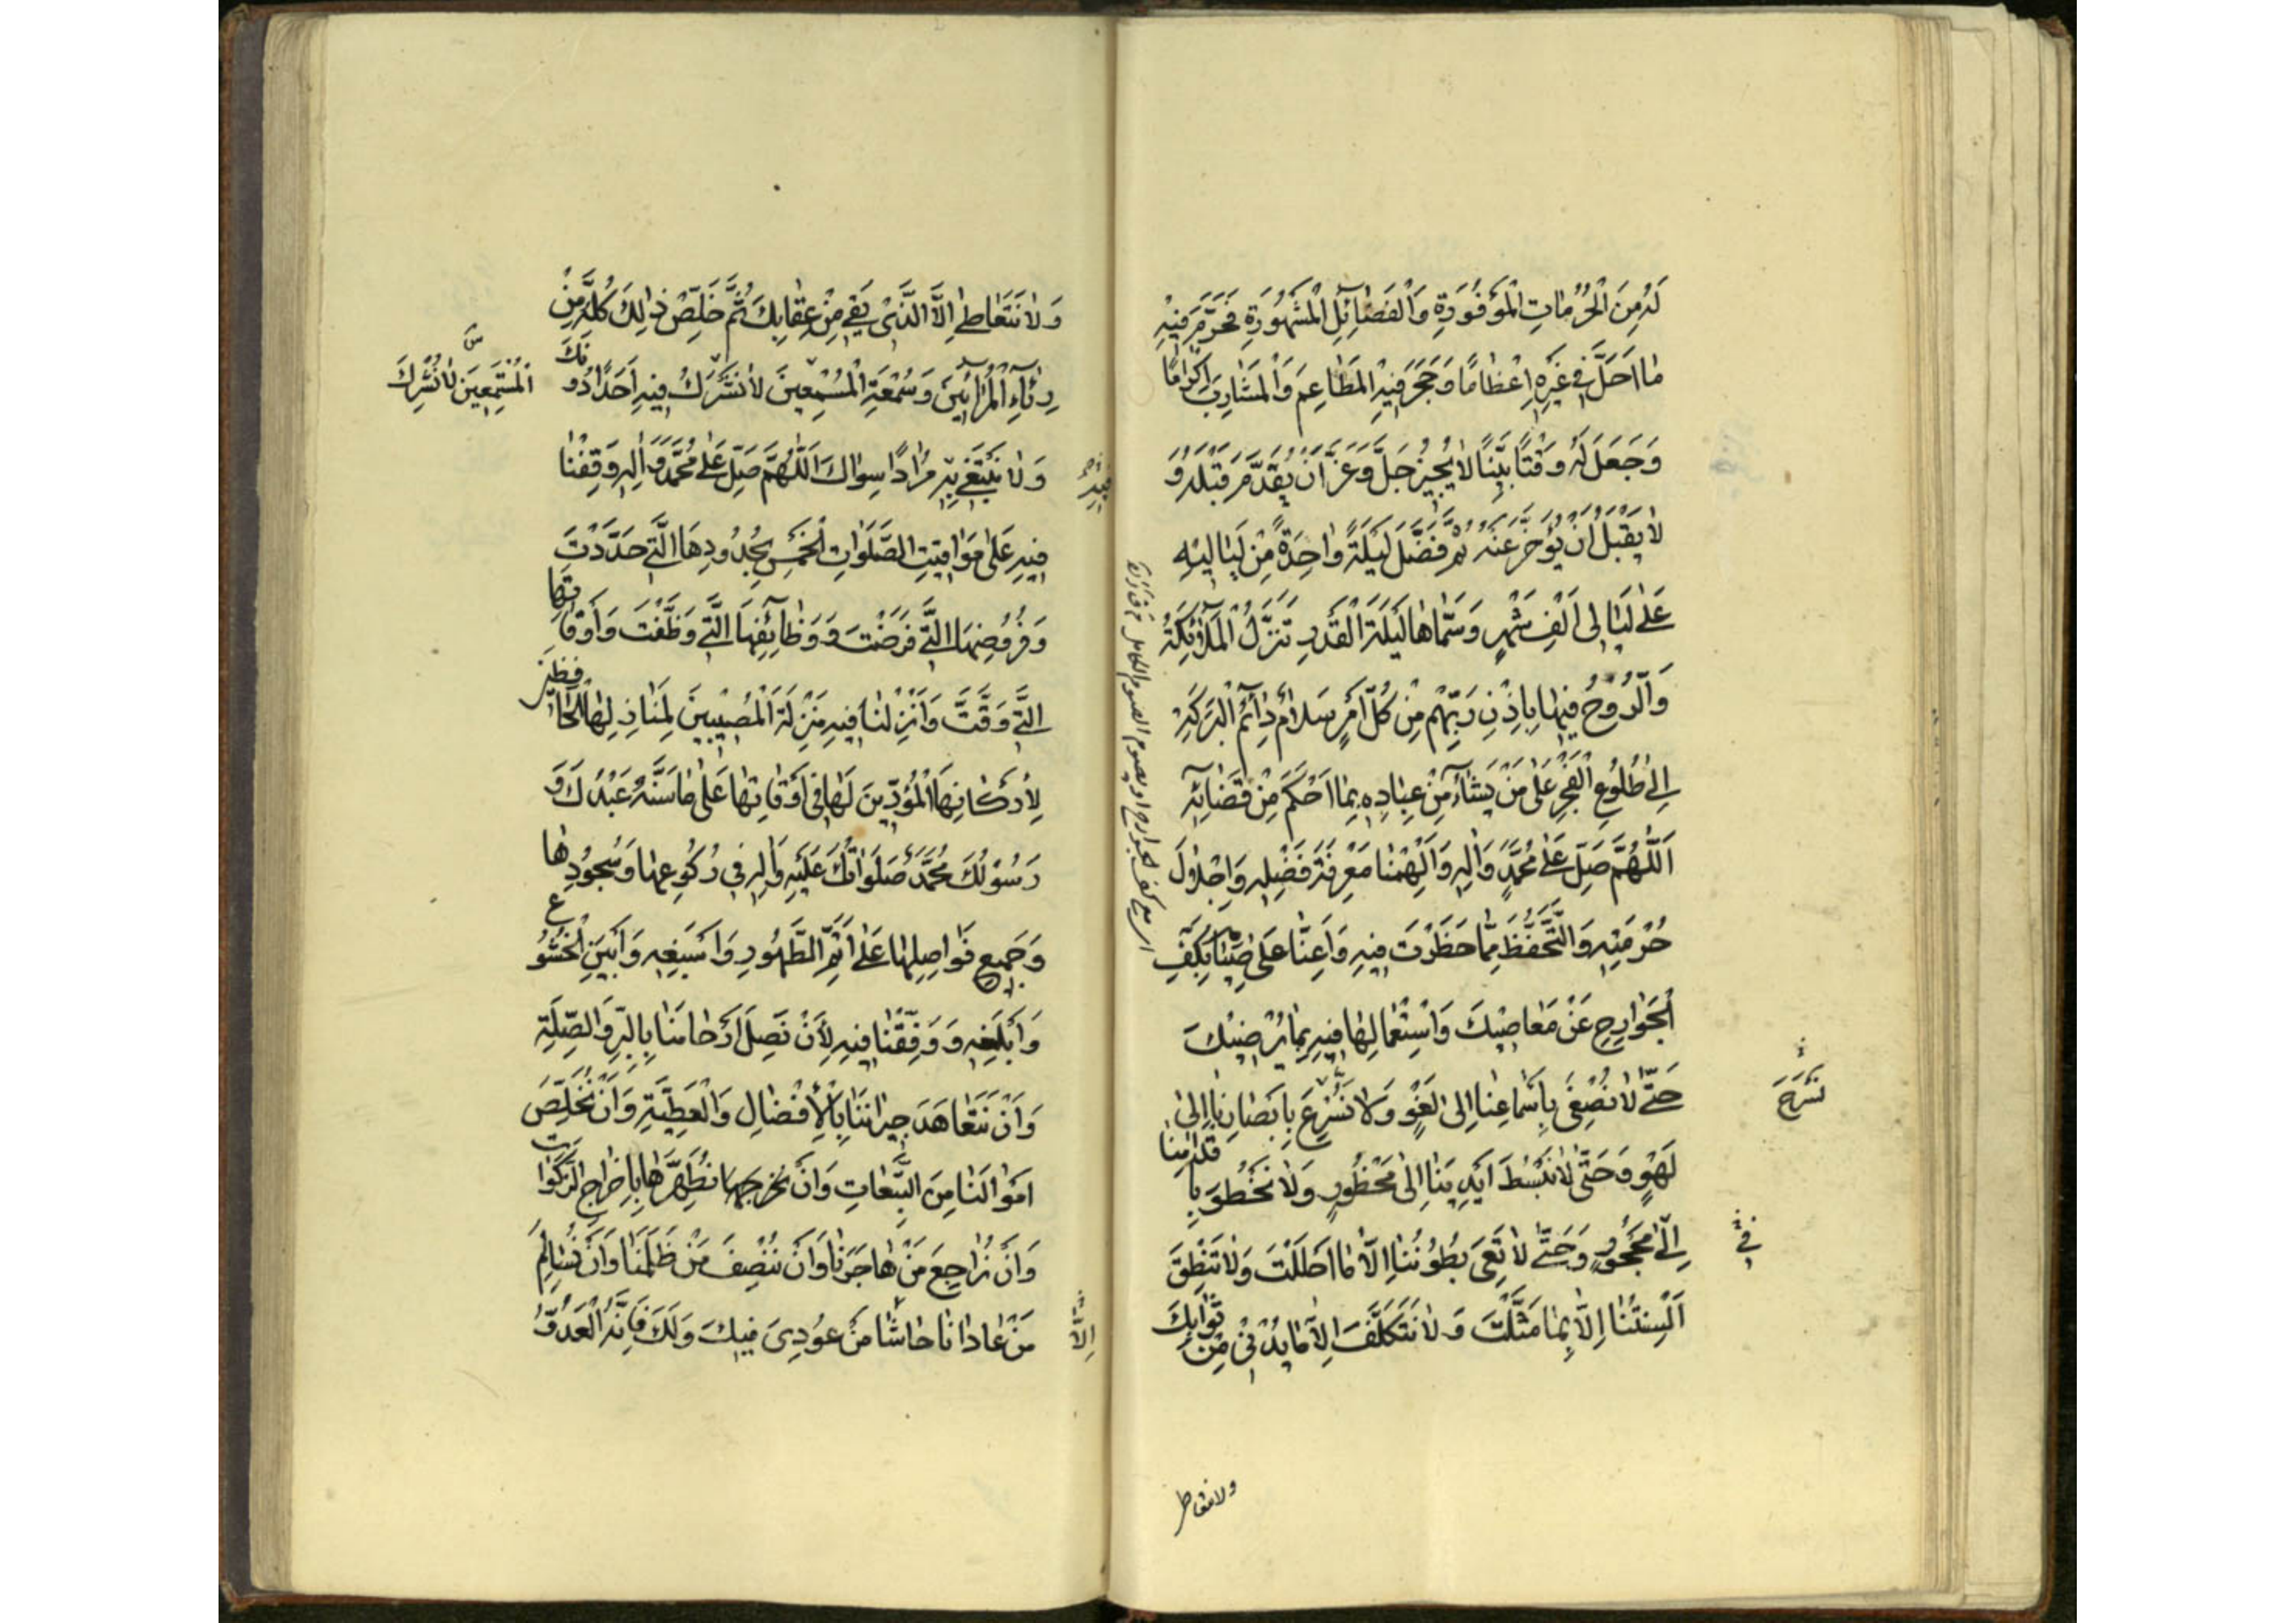 لَهُ مِنَ الْحُرُمَاتِ الْمَوْفُورَةِ وَالْفَضَائِلِ الْمَشْهُورَةِ فَحَرَّمَ فِيْهِ
مَا اَحَلَّ فِي غَيْرِهِ اِعْظَامًا وَحَجَرَ فِيْهِ الْمَطَاعِمَ وَالْمَشَارِبَ اِكْرَامًا
وَجَعَلَ لَهُ وَقْتًا بَيِّنًا لَا يُجِيْزُ جَلَّ وَعَزَّ اَنْ يُقَدَّمَ قَبْلَهُ وَ
لَا يَقْبَلُ اَنْ يُؤَخَّرَ عَنْهُ ثُمَّ فَضَّلَ لَيْلَةً وَاحِدَةً مِنْ لَيَالِيْهِ
عَلٰى لَيَالِى اَلْفِ شَهْرٍ وَسَمَّاهَا لَيْلَةَ الْقَدْرِ تَنَزَّلُ الْمَلَآئِكَةُ
وَالرُّوْحُ فِيْهَا بِاِذْنِ رَبِّهِمْ مِنْ كُلِّ اَمْرٍ سَلَامٌ دَآئِمُ الْبَرَكَةِ
اِلٰى طُلُوْعِ الْفَجْرِ عَلٰى مَنْ يَشَآءُ مِنْ عِبَادِهِ بِمَا اَحْكَمَ مِنْ قَضَائِهِ
اَللّٰهُمَّ صَلِّ عَلٰى مُحَمَّدٍ وَاٰلِهِ وَاَلْهِمْنَا مَعْرِفَةَ فَضْلِهِ وَاِجْلَالَ
حُرْمَتِهِ وَالتَّحَفُّظَ مِمَّا حَظَرْتَ فِيْهِ وَاَعِنَّا عَلٰى صِيَامِنَا بِكَفِّ
الْجَوَارِحِ عَنْ مَعَاصِيْكَ وَاسْتِعْمَالِهَا فِيْهِ بِمَا يُرْضِيْكَ
حَتّٰى لَا نُصْغِىَ بِاَسْمَاعِنَا اِلٰى لَغْوٍ وَلَا نُسْرِعَ بِاَبْصَارِنَا اِلٰى
نَسْرَحَ
لَهْوٍ وَحَتّٰى لَا نَبْسُطَ اَيْدِيَنَا اِلٰى مَحْظُوْرٍ وَلَا نَخْطُوَ بِاَقْدَامِنَا
اِلٰى مَحْجُوْرٍ وَحَتّٰى لَا تَعِىَ بُطُوْنُنَا اِلَّا مَا اَحْلَلْتَ وَلَا تَنْطِقَ
فِي
اَلْسِنَتُنَا اِلَّا بِمَا مَثَّلْتَ وَلَا نَتَكَلَّفَ اِلَّا مَا يُدْنِىْ مِنْ ثَوَابِكَ
ولا نتعاطى
وَلَا نَتَعَاطٰى اِلَّا الَّذِىْ يَقِى مِنْ عِقَابِكَ ثُمَّ خَلِّصْ ذٰلِكَ كُلَّهُ مِنْ
رِئَآءِ الْمُرَآئِيْنَ وَسُمْعَةِ الْمُسْمِعِيْنَ لَا نُشْرِكُ فِيْهِ اَحَدًا دُوْنَكَ
الْمُسْتَمِعِيْنَ لَا نُشْرِكَ
وَلَا نَبْتَغِى بِهِ مُرَادًا سِوَاكَ اَللّٰهُمَّ صَلِّ عَلٰى مُحَمَّدٍ وَاٰلِهِ وَقِفْنَا
فِيْهِ عَلٰى مَوَاقِيْتِ الصَّلَوَاتِ الْخَمْسِ بِحُدُوْدِهَا الَّتِىْ حَدَّدْتَ
وَفُرُوْضِهَا الَّتِىْ فَرَضْتَ وَوَظَآئِفِهَا الَّتِىْ وَظَّفْتَ وَاَوْقَاتِهَا
الَّتِىْ وَقَّتَّ وَاَنْزِلْنَا فِيْهِ مَنْزِلَةَ الْمُصِيْبِيْنَ لِمَنَازِلِهَا الْحَافِظِيْنَ
لِاَرْكَانِهَا الْمُؤَدِّيْنَ لَهَا فِى اَوْقَاتِهَا عَلٰى مَا سَنَّهُ عَبْدُكَ وَ
رَسُوْلُكَ مُحَمَّدٌ صَلَوَاتُكَ عَلَيْهِ وَاٰلِهِ فِى رُكُوْعِهَا وَسُجُوْدِهَا
وَجَمِيْعِ فَوَاصِلِهَا عَلٰى اَتَمِّ الطَّهُوْرِ وَاَسْبَغِهِ وَاَبْيَنِ الْخُشُوْعِ
وَاَبْلَغِهِ وَوَفِّقْنَا فِيْهِ لِاَنْ نَصِلَ اَرْحَامَنَا بِالْبِرِّ وَالصِّلَةِ
وَاَنْ نَتَعَاهَدَ جِيْرَانَنَا بِالْاِفْضَالِ وَالْعَطِيَّةِ وَاَنْ نُخَلِّصَ
اَمْوَالَنَا مِنَ التَّبِعَاتِ وَاَنْ نُطَهِّرَهَا بِاِخْرَاجِ الزَّكَوَاتِ
وَاَنْ نُرَاجِعَ مَنْ هَاجَرَنَا وَاَنْ نُنْصِفَ مَنْ ظَلَمَنَا وَاَنْ نُسَالِمَ
مَنْ عَادَانَا حَاشَا مَنْ عُوْدِىَ فِيْكَ وَلَكَ فَاِنَّهُ الْعَدُوُّ
اِلَّا